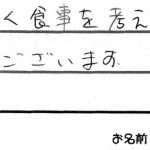 く食事を考え
ございます
お名前